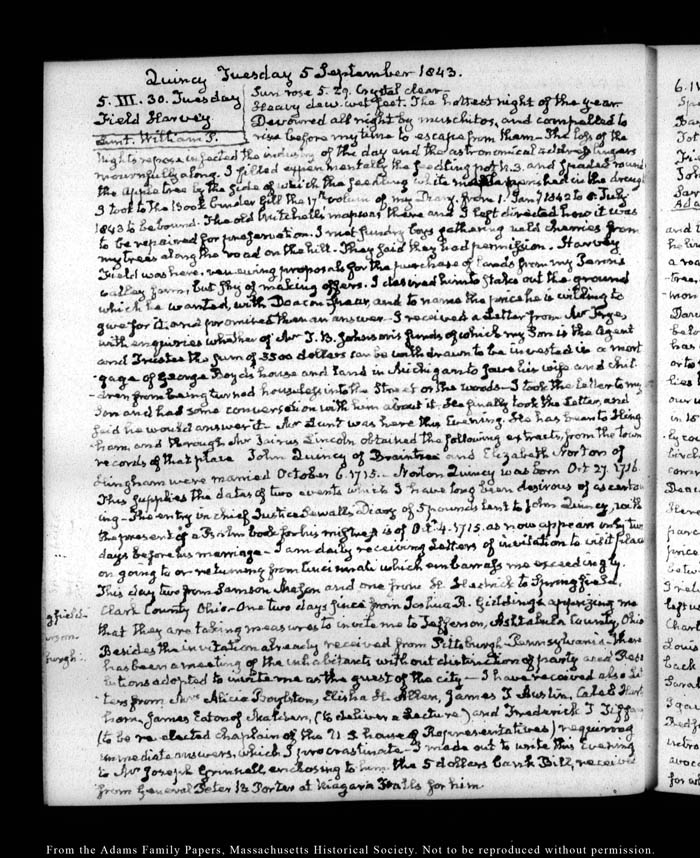 Quincy Tuesday 5 September 1843.
5. III. 30. Tuesday
Field Harvey
Lunt. William P.
Sun rose 5. 29. Crystal clear—
Heavy dew. wet feet. The hottest night of the year.
Devoured all night by muschitos, and compelled to
rise before my time to escape from them— The loss of the
nights repose infected the industry of the day and the astronomical address lingers
mournfully along. I filled experimentally the seedling pot N. 3. and spaded round
the apple tree by the side of which the seedling white perished in the
I took to the Book binder Gill the 17th volum of my Diary. from 1. Jany 1842 to 5. July
1843 to be bound. The old Mitchells map was there and I left directed how it was
to be repaired for preservation. I met sundry boys gathering wild cherries from
my trees along the road on the hill. They said they had permission. Harvey
Field was here, renewing proposals for the purchase of lands from my Penns
valley farm, but shy of making offers. I desired him to stake out the ground
which he wanted, with Deacon Spear, and to name the price he is willing to
give for it, and promised then an answer— I received a Letter from Mr
with enquiries whether of Mr T. B. Johnson's funds of which my Son is the Agent
and Trustee the sum of 3500 dollars can be withdrawn to be invested in a mort
gage of George Boyd's house and land in Michigan to save his wife and chil
dren from being turned houseless into the Street or the woods— I took the Letter to my
Son and had some conversation with him about it. He finally took the Letter, and
said he would answer it— Mr Lunt was here this Evening. He has been to Hing
ham, and through Mr Jairus Lincoln obtained the following extracts, from the town
records of that place John Quincy of Braintree and Elizabeth Norton of
Hingham were married October 6. 1715.— Norton Quincy was born Oct 27. 1716.
This supplies the dates of two events which I have long been desirous of ascertain
ing— The entry in chief Justice Sewalls Diary of 5 pounds lent to John Quincy, with
the present of a Psalm book for his mistress is of Oct. 4. 1715. as now appears only two
days before his marriage— I am daily receiving Letters of invitation to visit places
on going to or returning from Cincinnati which embarrass me exceedingly.
This day two from Samson Mason and one from to Springfield,
Clark County Ohio— One two days since from Joshua R. Giddings apprizing me
that they are taking measures to invite me to Jefferson, Ashtabula County, Ohio
Besides the invitation already received from Pittsburgh Pennsylvania— there
has been a meeting of the inhabitants without distinction of party and Reso
lutions adopted to invite me as the guest of the city— I have received also Let
ters from Mrs Alicia Boylston, Elisha H. Allen, James T Austin, Caleb Harts
horn, James Eaton of Malden, (to deliver a Lecture) and Frederick T Tiffany
(to be re-elected chaplain of the U S house of Representatives) requiring
immediate answers, which I procrastinate— I made out to write this Evening
to Mr Joseph Grinnell, enclosing to him the 5 dollars bank Bill, received
from General Peter B Porter at Niagara Falls for him.
From the Adams Family Papers, Massachusetts Historical Society. Not to be reproduced without permission.